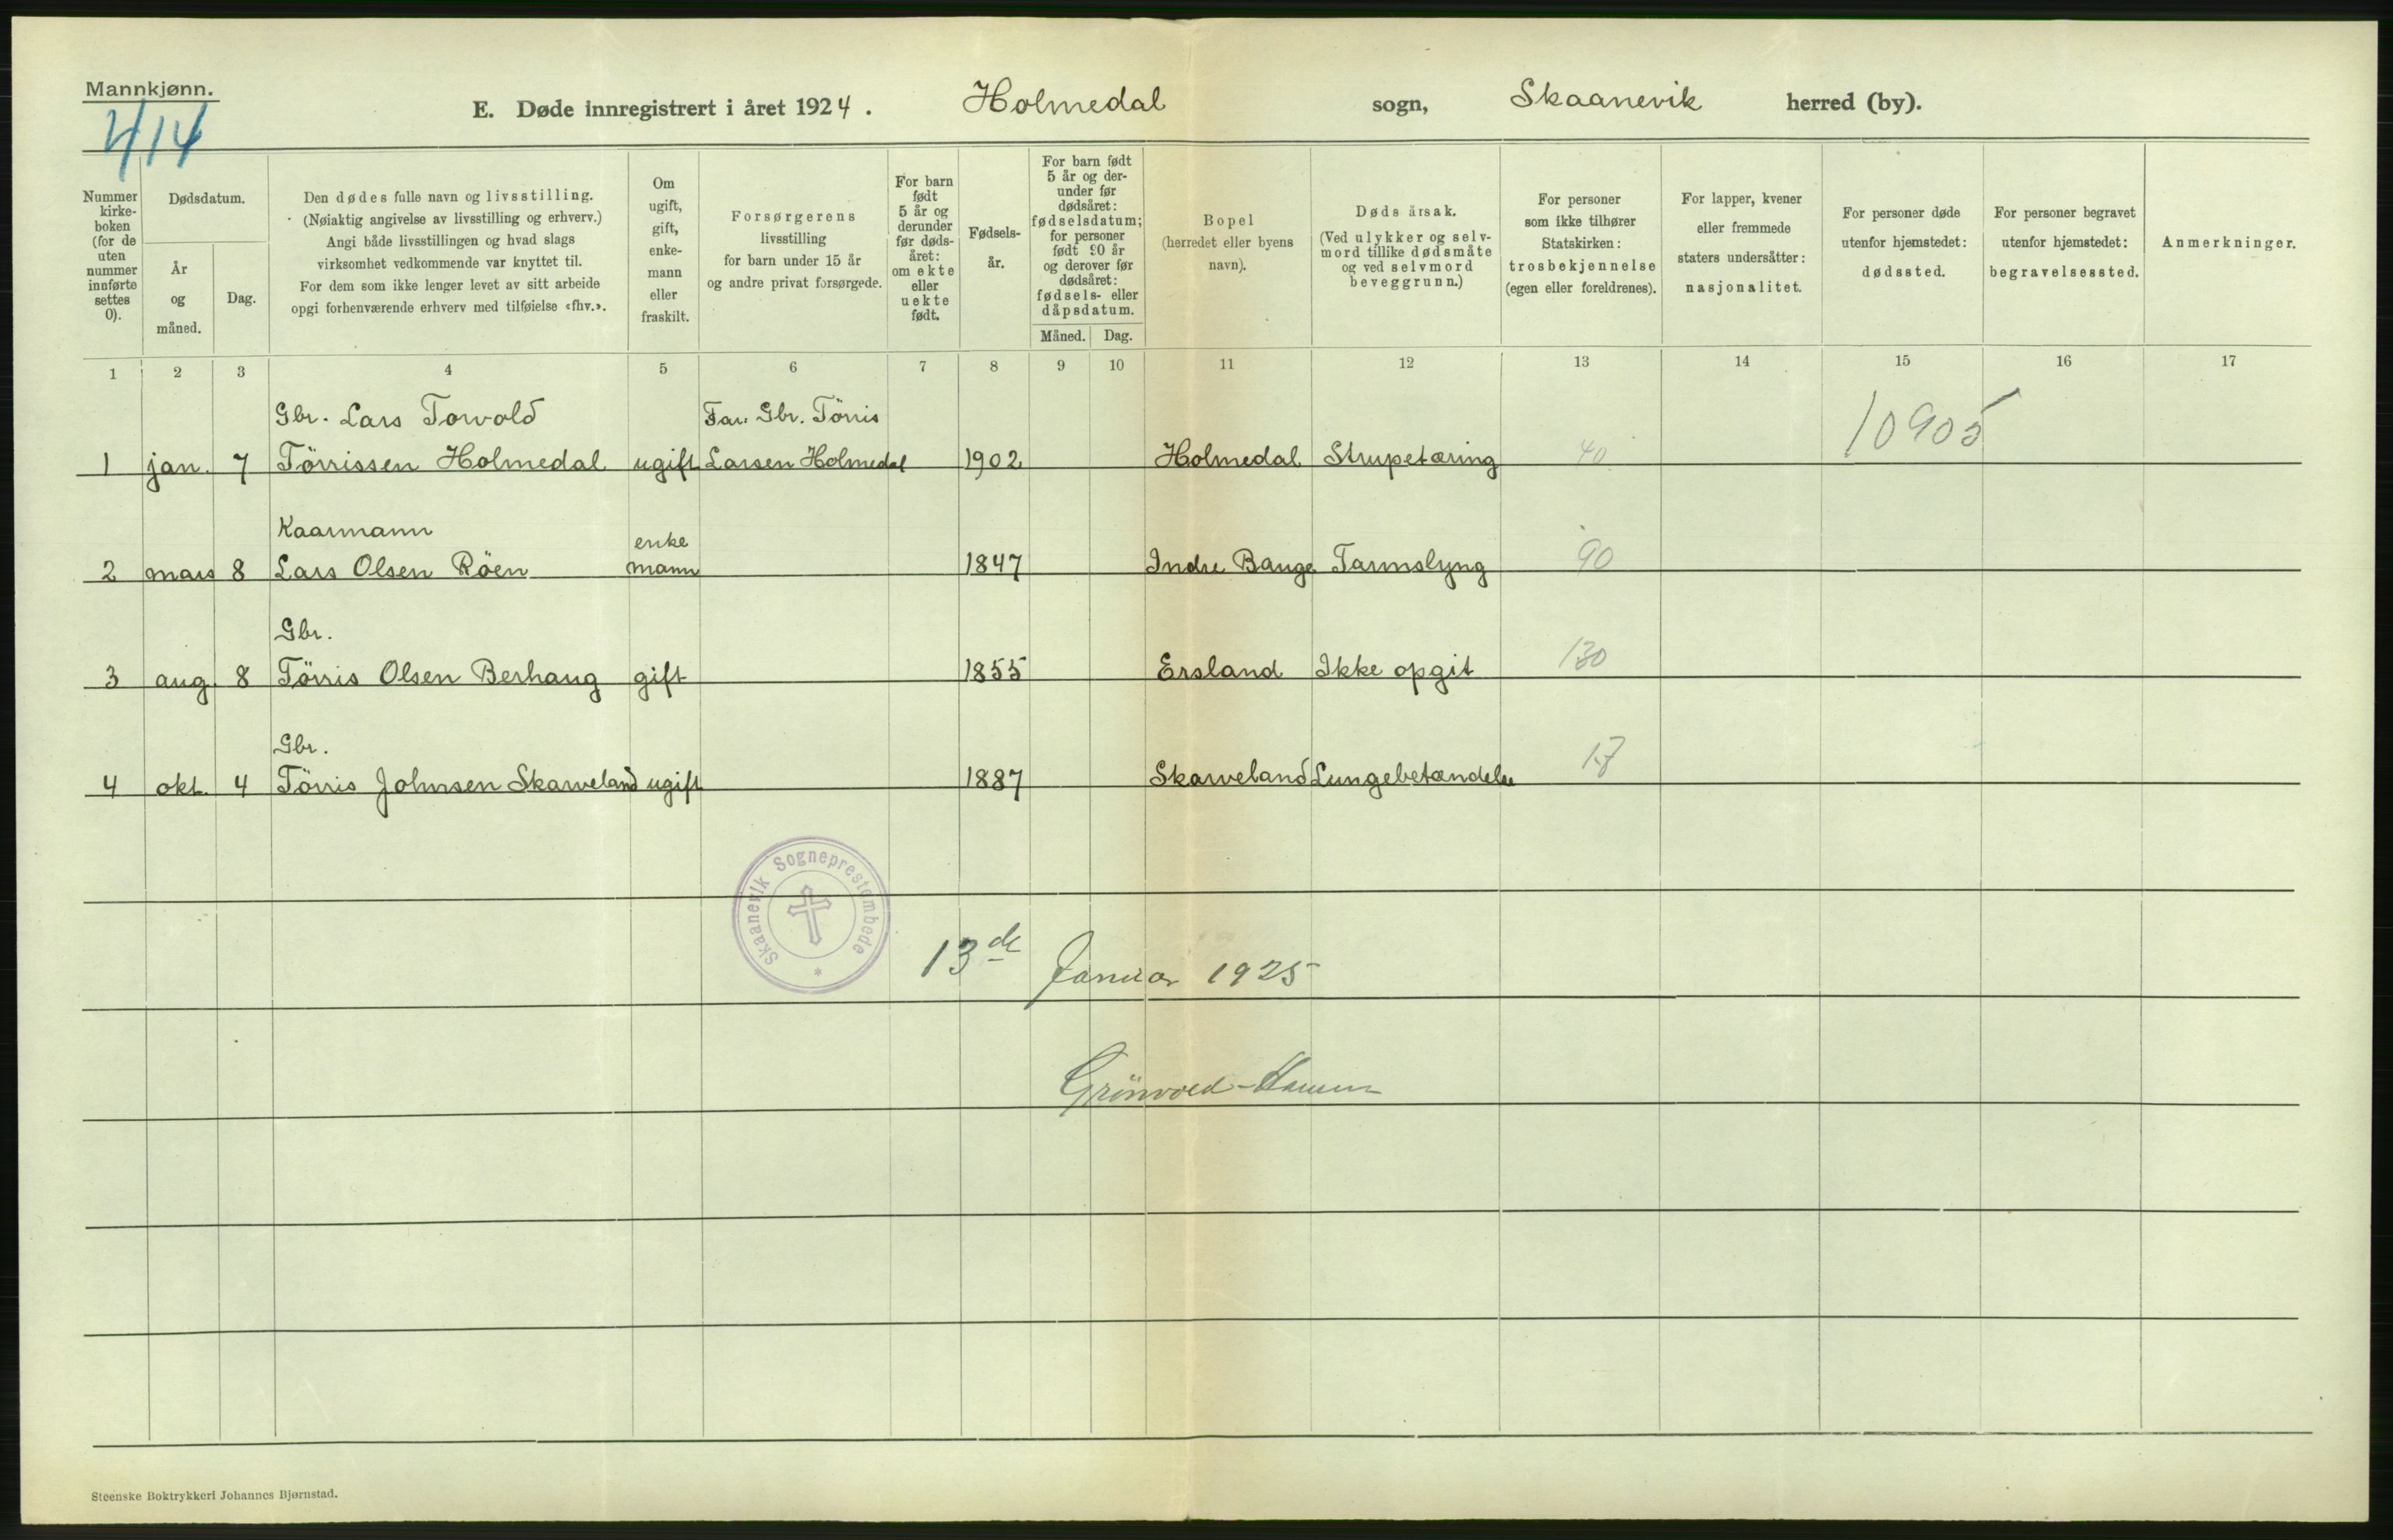 Mannkjønn.
414
E. Døde innregistrert i året 1924. Holmedal sogn, Skaanevik herred (by).
Nummer kirke- boken (for de uten nummer innførte settes 0).
Dødsdatum.
År og måned.
Dag.
Den dødes fulle navn og livsstilling.
(Nøiaktig angivelse av livsstilling og erhverv.)
Angi både livsstillingen og hvad slags
virksomhet vedkommende var knyttet til.
For dem som ikke lenger levet av sitt arbeide
opgi forhenværende erhverv med tilføielse «fhv.».
Om ugift, gift, enke- mann eller fraskilt.
Forsørgerens
livsstilling
for barn under 15 år
og andre privat forsørgede.
For barn født 5 år og derunder før døds- året: om ekte eller uekte født.
Fødsels- år.
For barn født 5 år og der- under før dødsåret: fødselsdatum; for personer født 90 år og derover før dødsåret: fødsels- eller dåpsdatum.
Måned. Dag.
Bopel
(herredet eller byens
navn).
Dødsårsak.
(Ved ulykker og selv-
mord tillike dødsmåte
og ved selvmord
beveggrunn.)
For personer
som ikke tilhører
Statskirken:
trosbekjennelse
(egen eller foreldrenes).
For lapper, kvener
eller fremmede
staters undersåtter:
nasjonalitet.
For personer døde
utenfor hjemstedet:
dødssted.
For personer begravet
utenfor hjemstedet:
begravelsessted.
Anmerkninger.
1 2 3 4 5 6 7 8 9 10 11 12 13 14 15 16 17
Gbr. Lars Torvold Far: Gbr. Törris 10905
1 jan. 7 Törrissen Holmedal ugift Larsen Holmedal 1902 Holmedal Strupetæring 40
Kaarmann enke
2 mars 8 Lars Olsen Röen mann 1847 Indre Bauge Tarmslyng 90
Gbr.
3 aug. 8 Törris Olsen Berhaug gift 1855 Ersland Ikke opgit 130
Gbr.
4 okt. 4 Törris Johnsen Skarveland ugift 1887 Skarveland Lungebetændelse 17
Skaanevik Sogneprestembede
13de Januar 1925
Grönvold-Hansen
Steenske Boktrykkeri Johannes Bjørnstad.